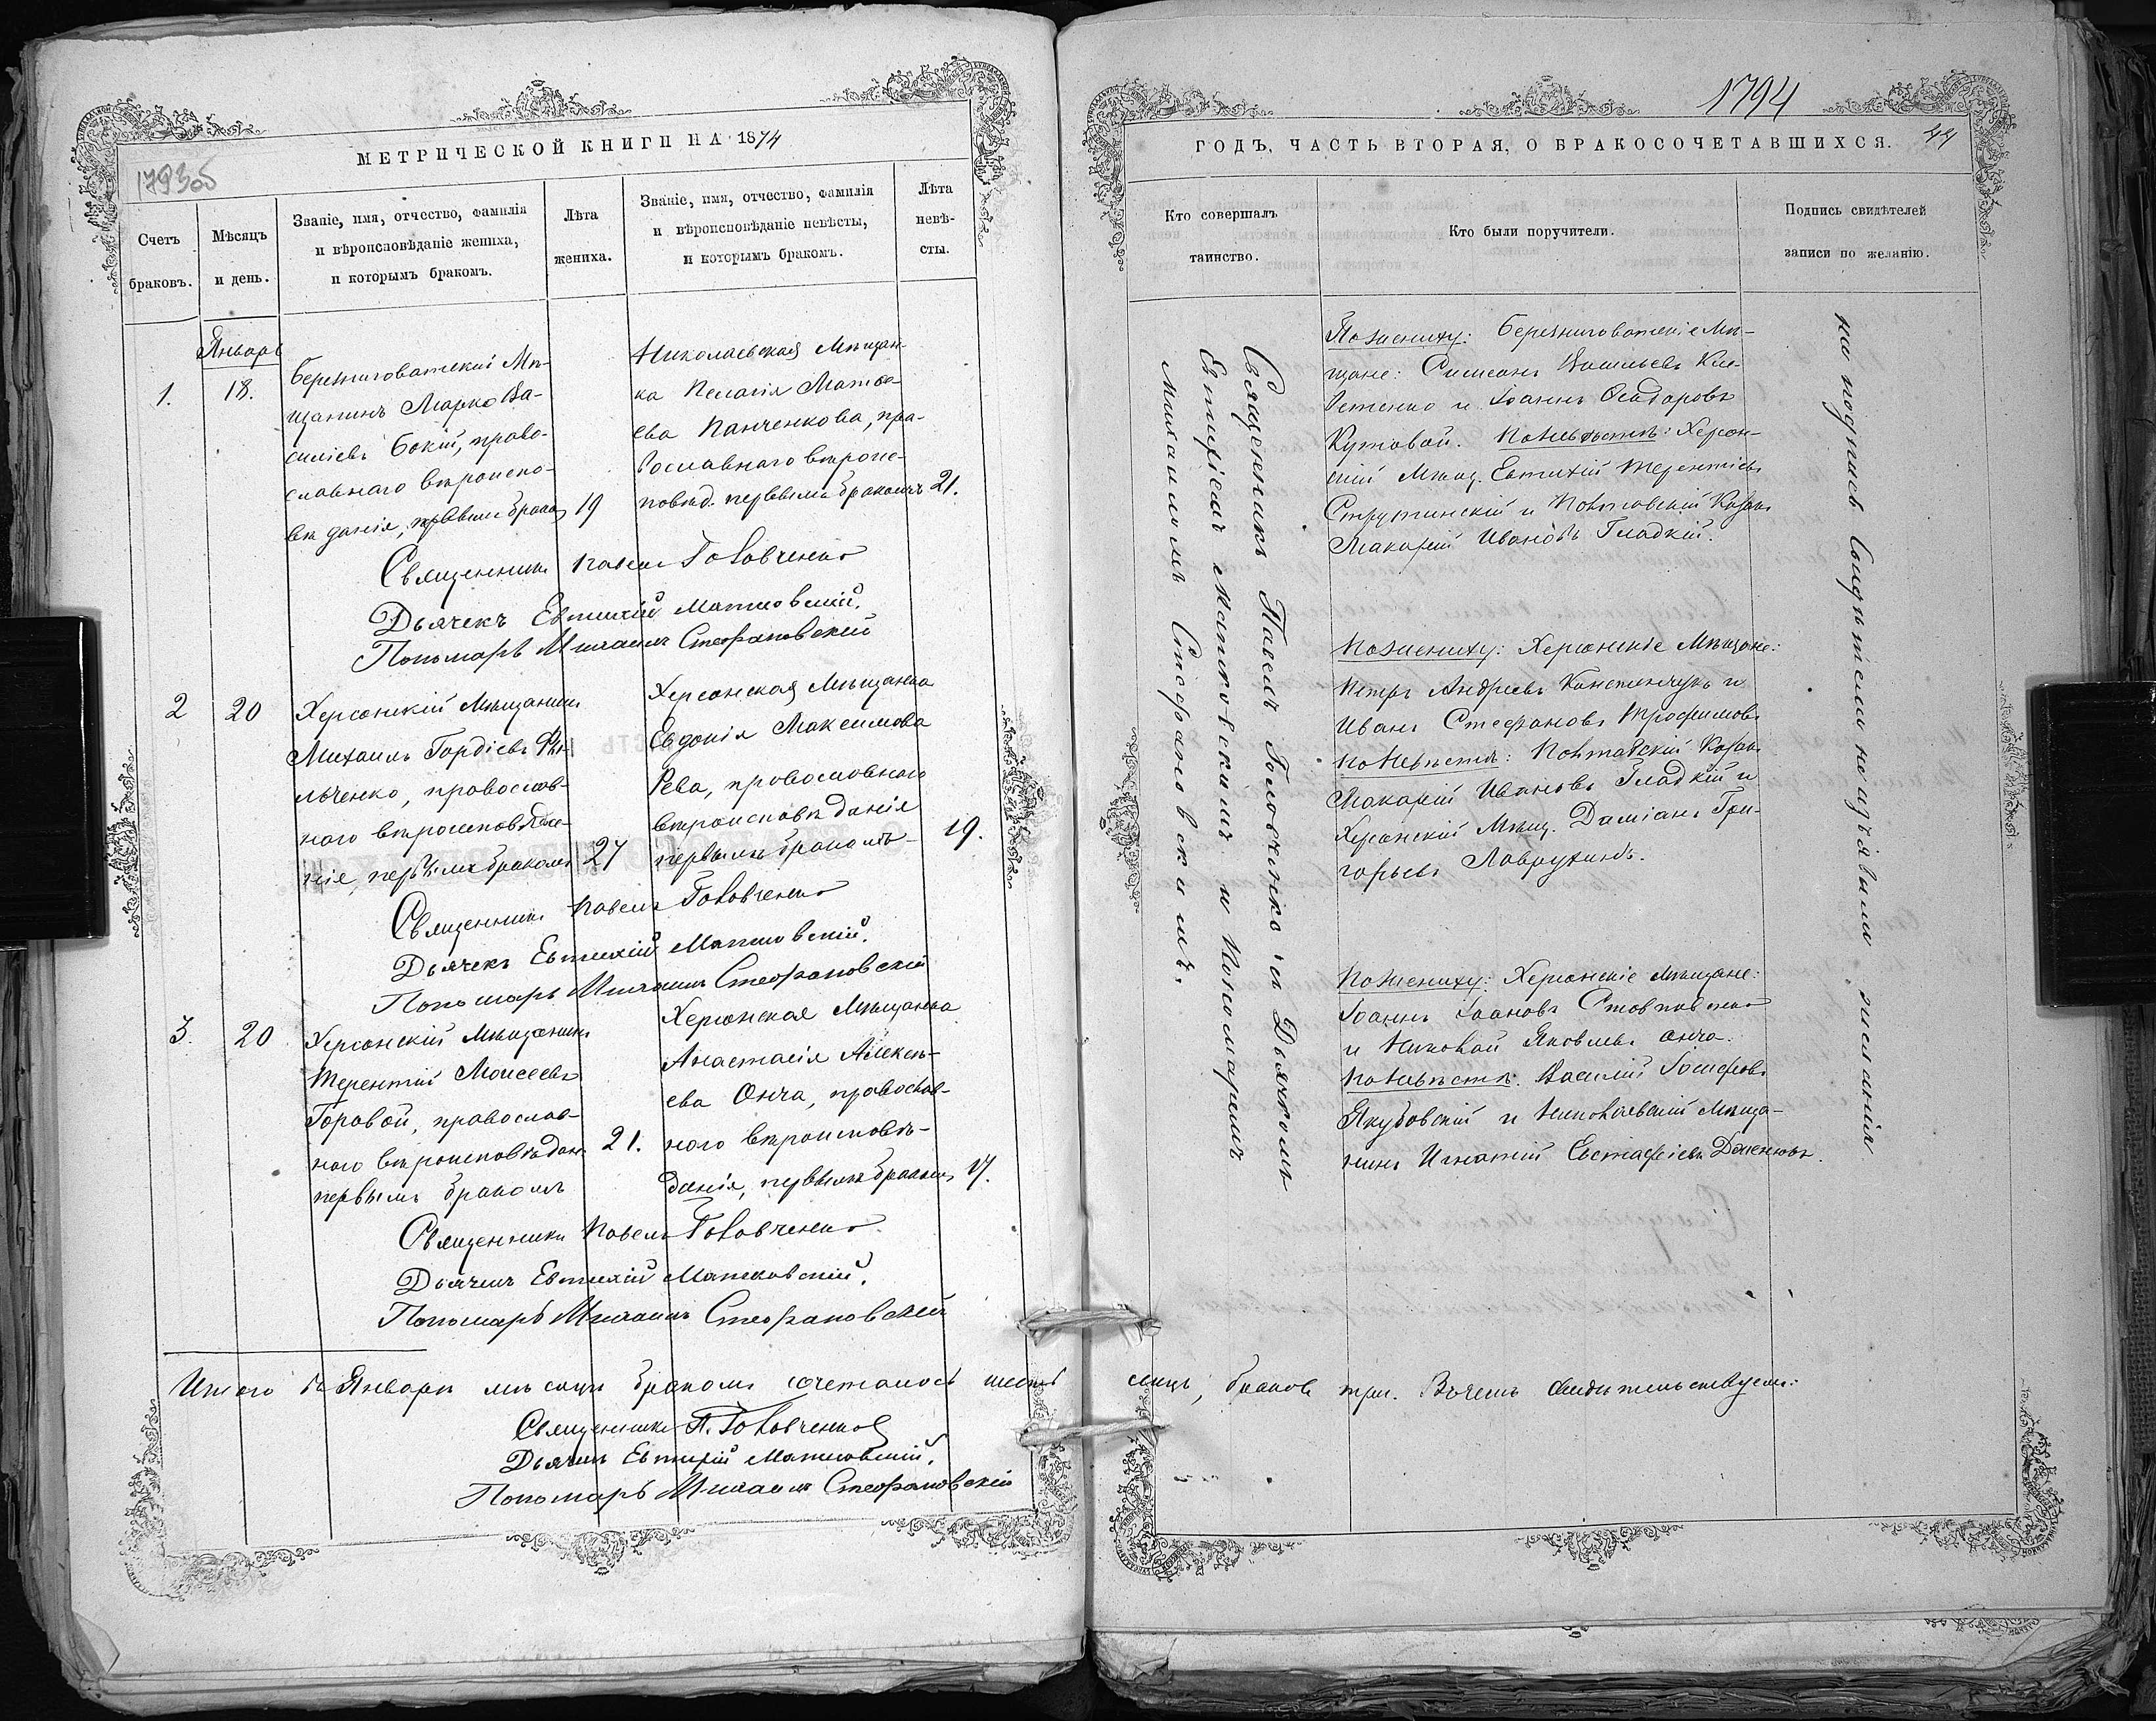 МЕТРИЧЕСКОЙ КНИГИ НА 1874
1793об
Счетъ браковъ.
Мѣсяцъ и день.
Званіе, имя, отчество, фамилія и вѣроисповѣданіе жениха, и которымъ бракомъ.
Лѣта жениха.
Званіе, имя, отчество, фамилія и вѣроисповѣданіе невѣсты, и которымъ бракомъ.
Лѣта невѣ-сты.
Январь
1.
18.
Березниговатскій Мѣ-
щанинъ Марко Ва-
силіевъ Бокій, право-
славнаго вѣроиспо-
вѣданія, первымъ бракомъ
19
Николаевская Мѣщан-
ка Пелагія Матвѣ-
ева Панченкова, пра-
вославнаго вѣроис-
повѣд. первымъ бракомъ
21.
Священникъ Павелъ Головченко
Дьячекъ Евтихій Матковскій.
Пономарь Михаилъ Стефановскій
2
20
Херсонскій Мѣщанинъ
Михаилъ Гордіевъ Фи-
льченко, православ-
наго вѣроисповѣда-
нія, первымъ бракомъ
27
Херсонская Мѣщанка
Евдокія Максимова
Рева, православнаго
вѣроисповѣданія
первымъ бракомъ
19.
Священникъ Павелъ Головченко
Дьячекъ Евтихій Матковскій.
Пономарь Михаилъ Стефановскій
3.
20
Херсонскій Мѣщанинъ
Терентій Моисеевъ
Горовой, православ-
наго вѣроисповѣдан.
первымъ бракомъ
21.
Херсонская Мѣщанка
Анастасія Алексѣ-
ева Онча, православ-
наго вѣроисповѣ-
данія, первымъ бракомъ
17.
Священникъ Павелъ Головченко
Дьячекъ Евтихій Матковскій.
Пономарь Михаилъ Стефановскій
Итого въ Январѣ мѣсяцѣ бракомъ сочеталось шесть
Священникъ П. Головченко
Дьячекъ Евтихій Матковскій.
Пономарь Михаилъ Стефановскій
1794
44
ГОДЪ, ЧАСТЬ ВТОРАЯ, О БРАКОСОЧЕТАВШИХСЯ.
Кто совершалъ таинство.
Кто были поручители.
Подпись свидѣтелей записи по желанію.
Священникъ Павелъ Головченко съ Дьячкомъ
Евтихіемъ Матковскимъ и Пономаремъ
Михаиломъ Стефановскимъ.
По жениху: Березниговатскіе Мѣ-
щане: Симеонъ Васильевъ
и Іоаннъ
Кутовой. По невѣстѣ: Херсон-
скій Мѣщ. Евтихій Терентіевъ
Струтинскій и Полтавскій Козакъ
Макарій Ивановъ Гладкій.
По жениху: Херсонскіе Мѣщане:
Петръ Андреевъ Константинукъ и
Иванъ Стефановъ Трофимовъ
По Невѣстѣ: Полтавскій Козакъ
Макарій Ивановъ Гладкій и
Херсонскій Мѣщ. Даміанъ Гри-
горьевъ Лаврухинъ.
По Жениху: Херсонскіе мѣщане:
Іоаннъ Іоановъ
и Николай Яковлевъ Онча.
По Невѣстѣ: Василій Іосифовъ
Якубовскій и Николаевскій Мѣща-
нинъ Игнатій Евстафіевъ
на подпись свидѣтели не изъявили желанія
лицъ, браковъ три. Въ чемъ свидѣтельствуемъ: